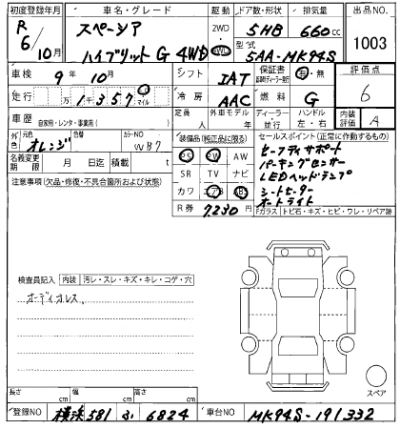 初度登録年月 車名・グレード 駆動 ドア数・形状 排気量 出品NO.
R 6/10月 スペーシア ハイブリット G 4WD 2WD 4WD 5HB 660cc 1003
型式 5AA-MK94S
車検 9年 10月 シフト IAT 保証書 有・無 評価点
走行 万1千357 マイル 冷房 AAC 燃料 G 6
車歴 自家用・レンタ・事業用( ) 定員 人 外車モデル 年 ディーラー 並行 ハンドル 左・右 内装評価 A
色 元色 オレンジ 色替 カラーNO WB7 装備品(純正品に限る) セールスポイント(正常に作動するもの)
名義変更期限 月 日迄 積載 t PS PW AW セーフティサポート
注意事項(欠品・修復・不具合箇所および状態) SR TV ナビ パーキングセンサー
カワ エアB ABS LEDヘッドランプ
シートヒーター
R券 7,230円 オートライト
Fガラス トビ石・キズ・ヒビ・ワレ・リペア跡
検査員記入 内装 汚レ・スレ・キズ・キレ・コゲ・穴
ボディカスレ
スペア
長さ cm 幅 cm 高さ cm
登録NO 横浜 581 ふ 6824 車台NO MK94S-191332